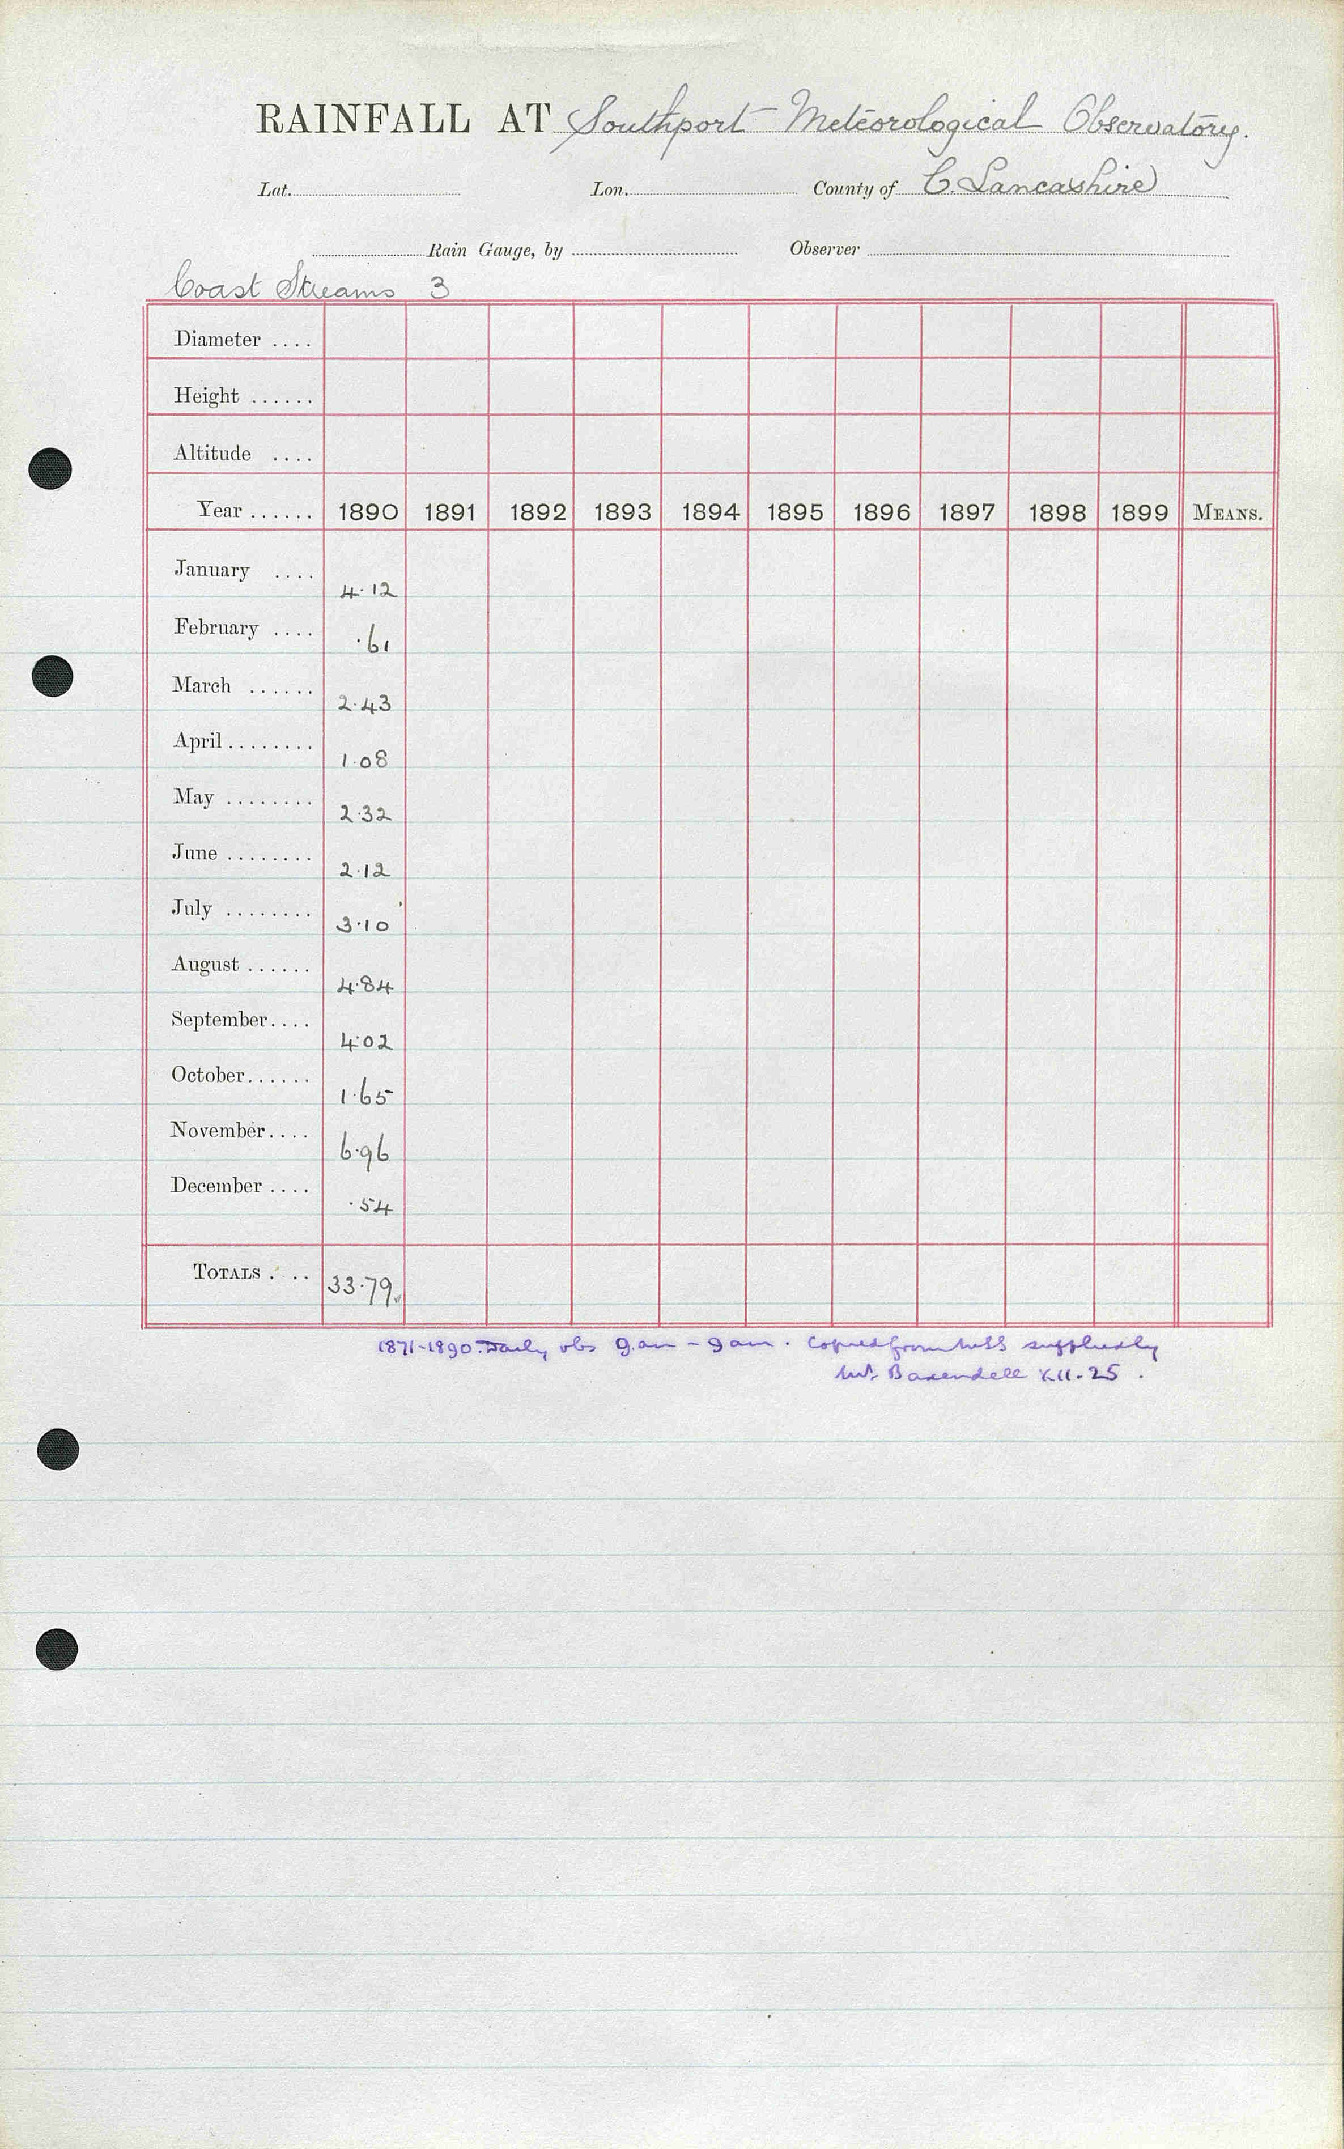 RAINFALL AT Southport Meteorological Observatory.
Lat. Lon. County of C. Lancashire
Rain Gauge, by Observer
Coast Streams 3
Diameter ....
Height ......
Altitude ....
Year ...... 1890 1891 1892 1893 1894 1895 1896 1897 1898 1899 MEANS.
January .... 4.12
February .... .61
March ...... 2.43
April ........ 1.08
May ........ 2.32
June ........ 2.12
July ........ 3.10
August ...... 4.84
September.... 4.02
October...... 1.65
November.... 6.96
December .... .54
TOTALS . .. 33.79
1871-1890. Daily obs 9am - 9am. Copied from MSS supplied by
Mr. Baxendell XII.25.